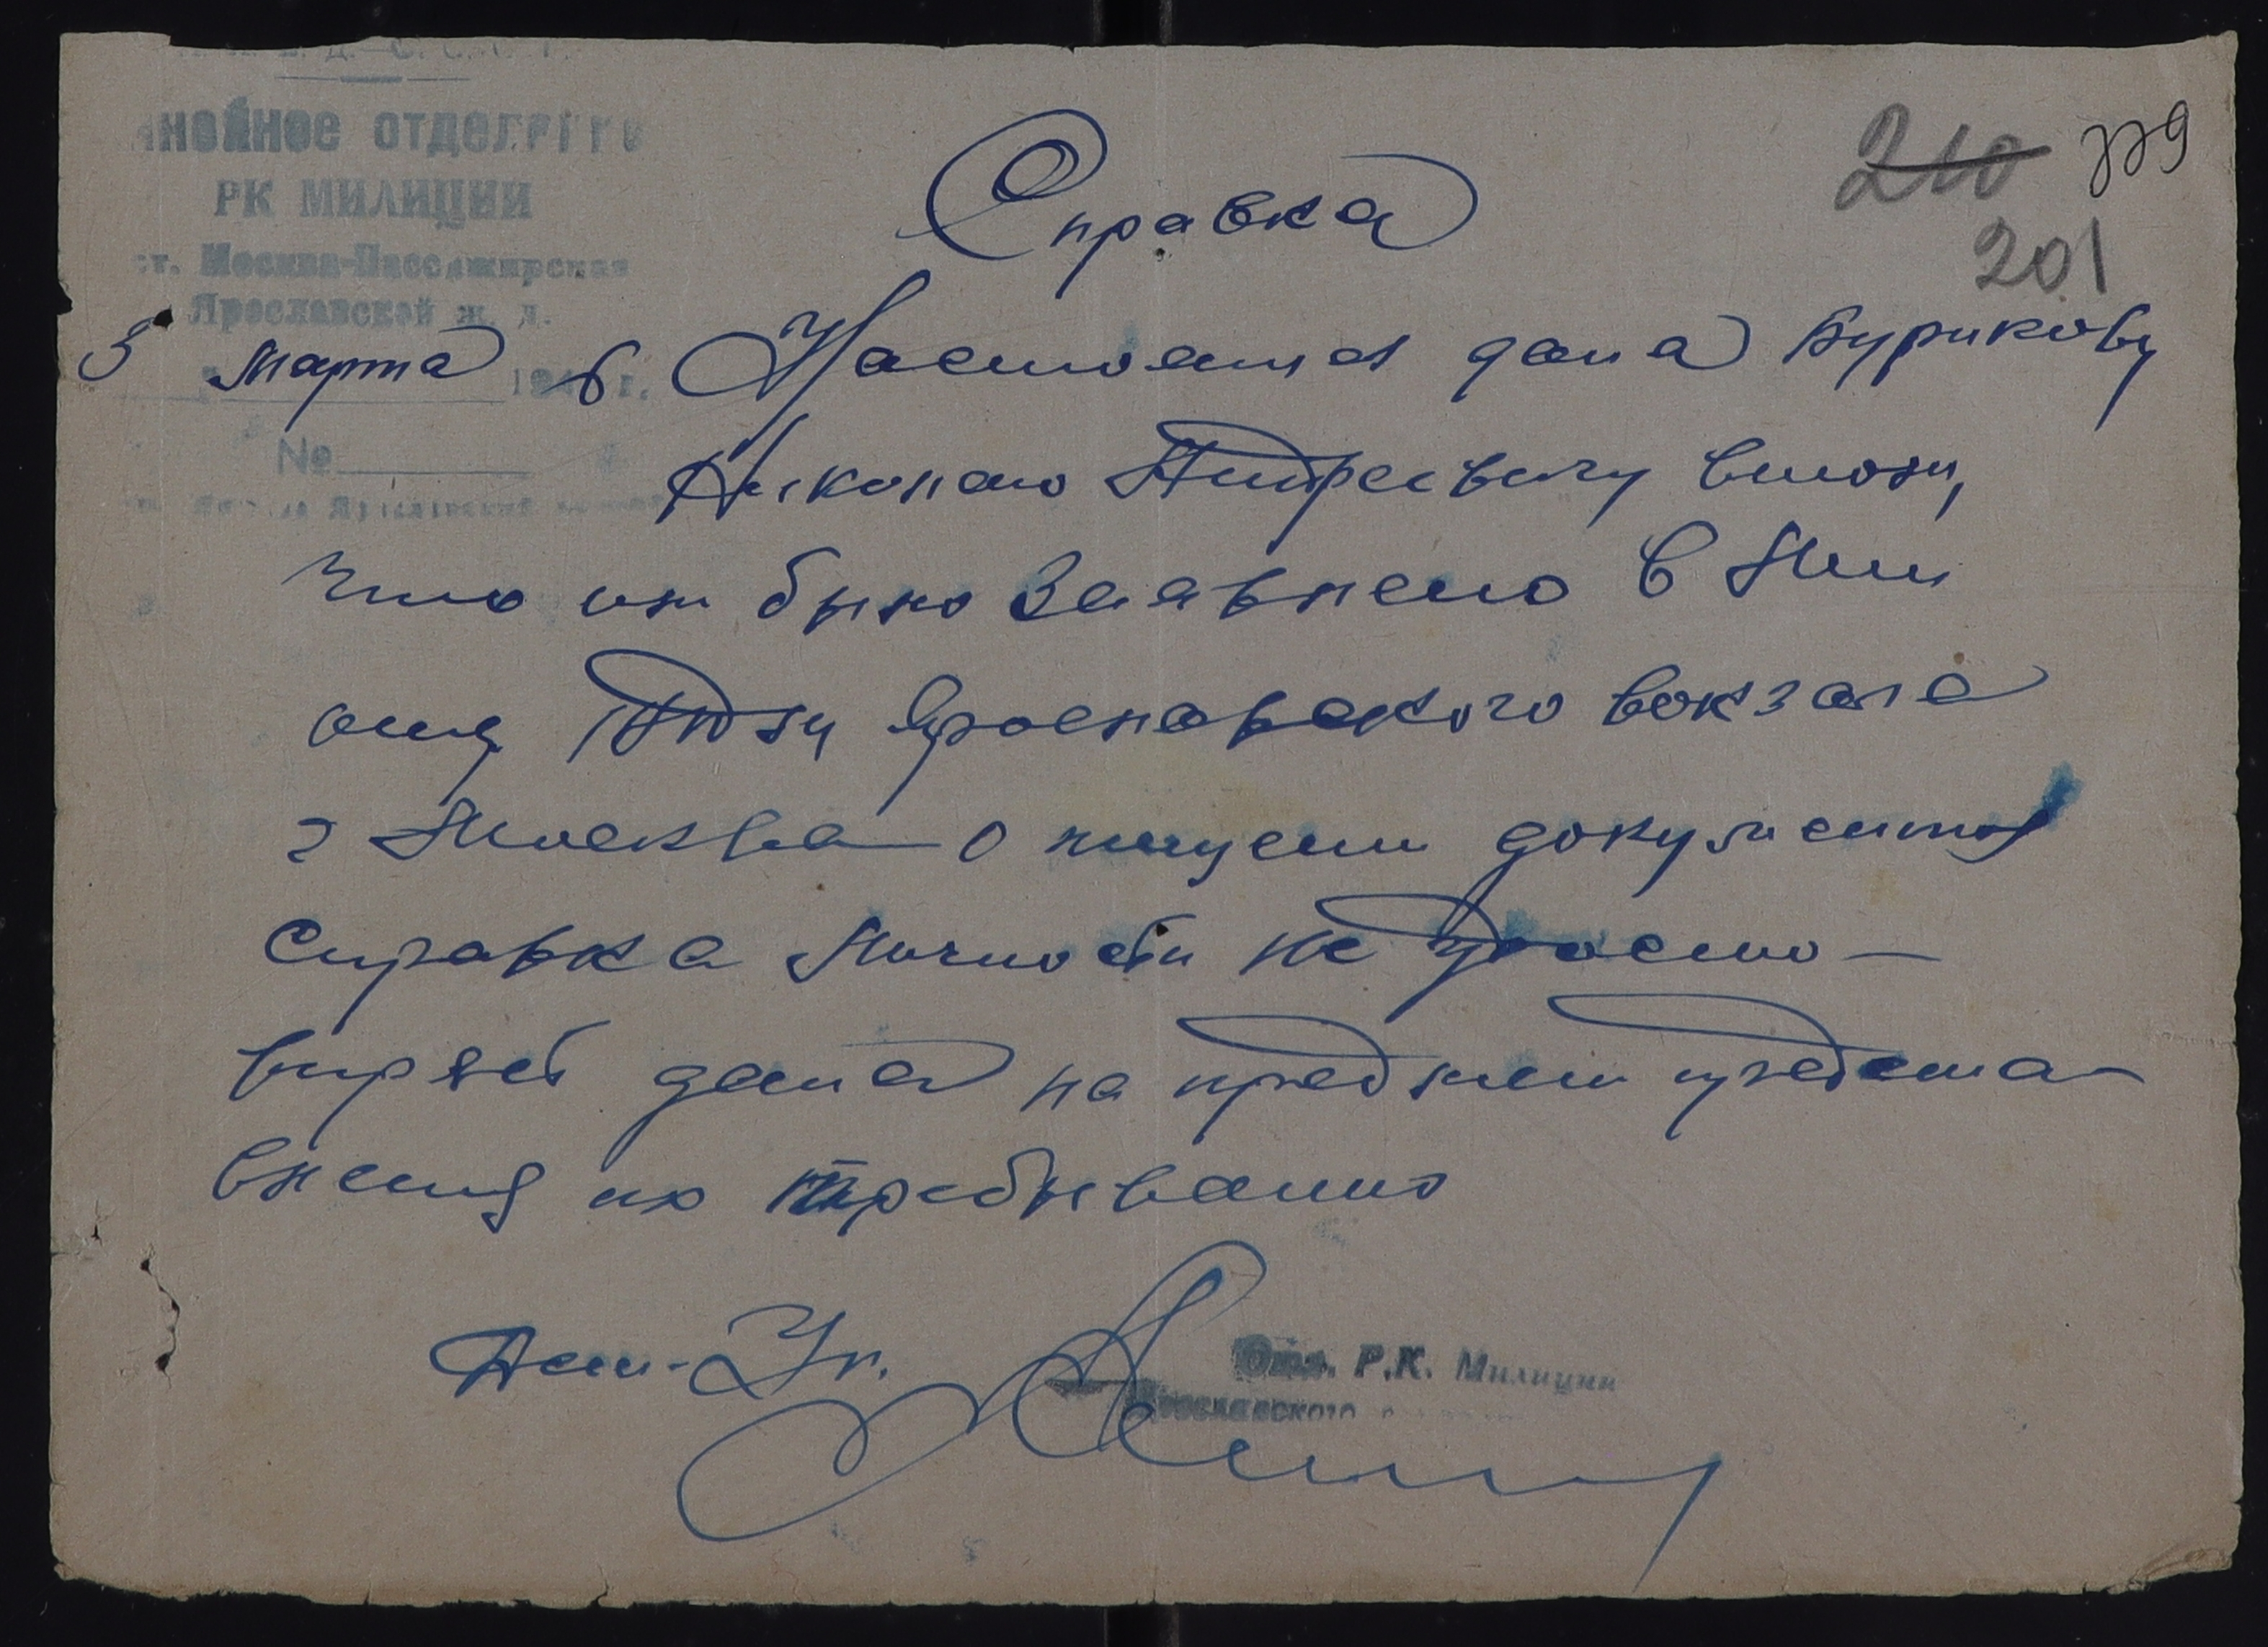 ЛИНЕЙНОЕ ОТДЕЛЕНИЕ
РК МИЛИЦИИ
ст. Москва-Пассажирская
Ярославской ж. д.
5 марта 194 6 г.
№
210 339
201
Справка
Настоящая дана Бурикову
Николаю Андреевичу в том,
что им было заявлено в Мил
отд Ярославского вокзала
г Москва о хищении документов
Справка личности не удосто-
веряет дана на предмет предста-
вления по требованию
Деж. Уп.
Отд. Р.К. Милиции
Ярославского